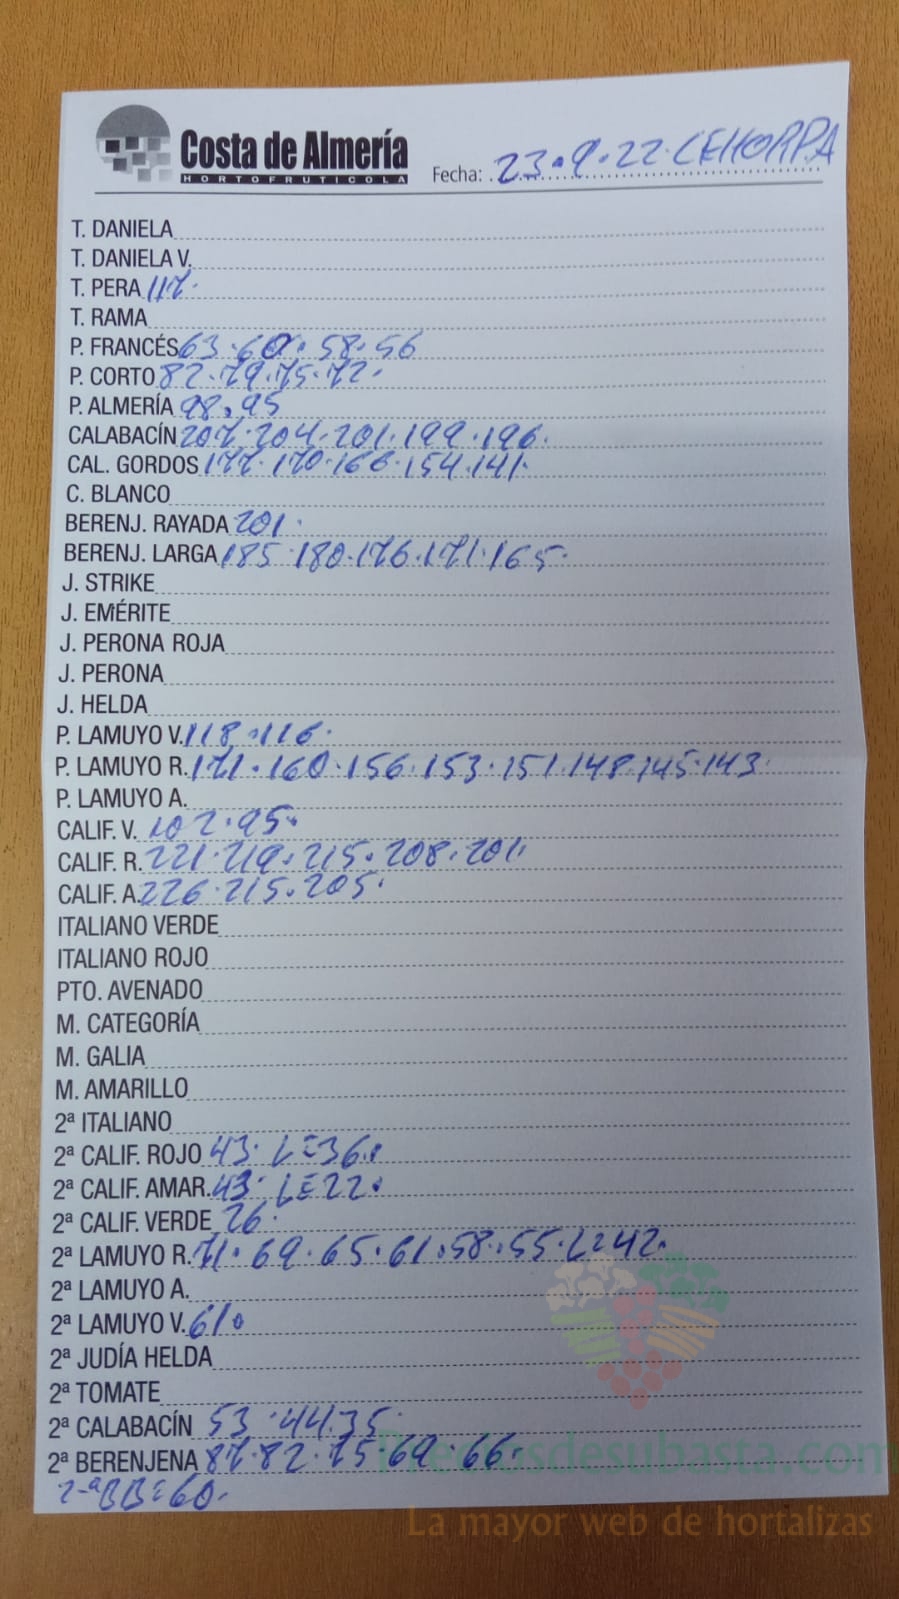 Costa de Almería
HORTOFRUTICOLA
Fecha: 23.9.22 CEHORPA
T. DANIELA
T. DANIELA V.
T. PERA 117.
T. RAMA
P. FRANCÉS 63.60.58.56
P. CORTO 82.79.75.72.
P. ALMERÍA 98.95
CALABACÍN 207.204.201.199.196.
CAL. GORDOS 177.170.166.154.141.
C. BLANCO
BERENJ. RAYADA 201.
BERENJ. LARGA 185.180.176.171.165.
J. STRIKE
J. EMÉRITE
J. PERONA ROJA
J. PERONA
J. HELDA
P. LAMUYO V. 118.116.
P. LAMUYO R. 171.160.156.153.151.148.145.143.
P. LAMUYO A.
CALIF. V. 102.95.
CALIF. R. 221.219.215.208.201.
CALIF. A. 226.215.205.
ITALIANO VERDE
ITALIANO ROJO
PTO. AVENADO
M. CATEGORÍA
M. GALIA
M. AMARILLO
2ª ITALIANO
2ª CALIF. ROJO 43. L=36.
2ª CALIF. AMAR. 43. L=22.
2ª CALIF. VERDE 26.
2ª LAMUYO R. 71.69.65.61.58.55.L=42.
2ª LAMUYO A.
2ª LAMUYO V. 61.
2ª JUDÍA HELDA
2ª TOMATE
2ª CALABACÍN 53.44.35.
2ª BERENJENA 87.82.75.69.66.
2-ªBB=60.
Preciosdesubasta.com
La mayor web de hortalizas